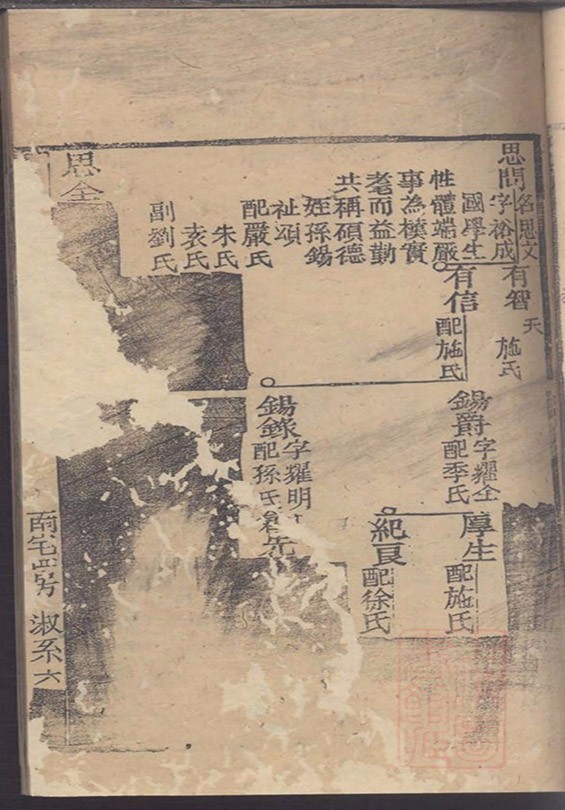 思問
名思文
字裕成
國學生
性體端嚴
事為樸實
耄而益勤
共稱碩德
姪孫錫
祉頌
配嚴氏
朱氏
袁氏
副劉氏
思全
有智
夭
施氏
有信
配施氏
錫爵
字耀全
配季氏
錫錄
字耀明
配孫氏
厚生
配施氏
紀良
配徐氏
淑系 六